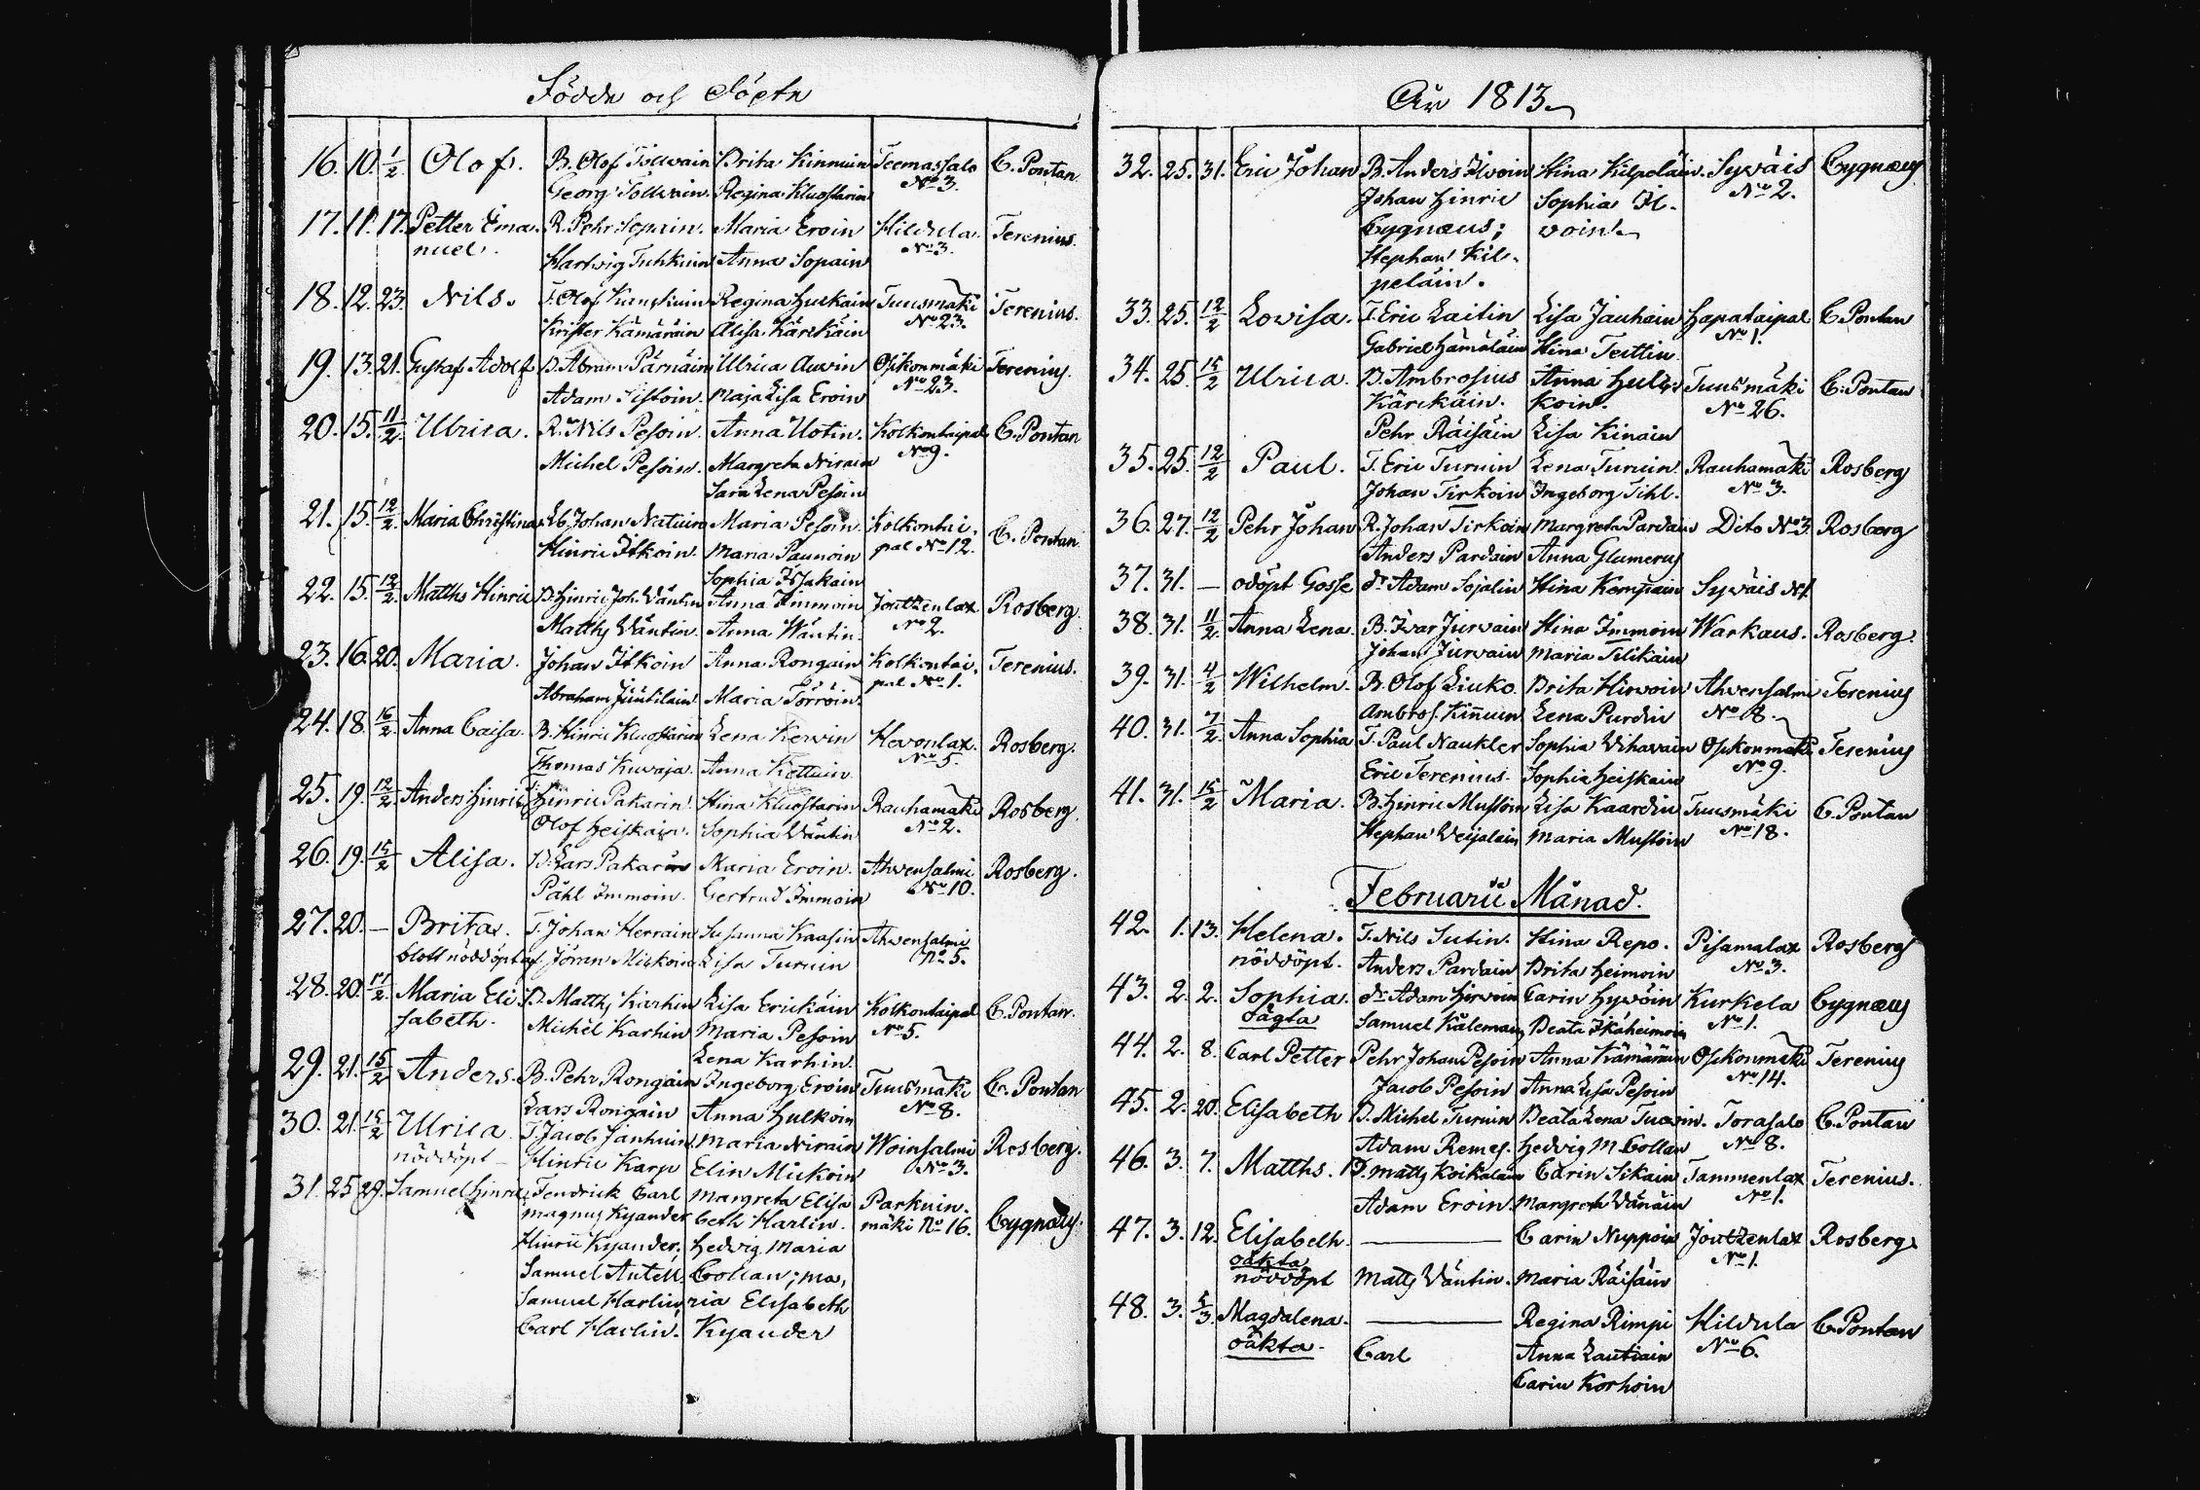 Födde och Döpte
16. 10. 1/2 Olof. B. Olof Tollvain Brita Kinnuin Teemassalo C. Pontan
Georg Tollvain. Regina Kluostarin No 3.
17. 11. 17. Petter Ema- R. Pehr Sopain. Maria Eroin Hildula Terenius.
nuel. Hartvig Tuhkuin Anna Sopain No 3.
18. 12. 23. Nils. T. Olof Regina Tuusmäki Terenius.
Krister Kämäräin Alisa Kärckäin No 23.
19. 13. 21. Gustaf Adolf B. Abram Pärnäin Ulrica Auvin Osikonmäki Terenius.
Adam Maja Lisa Eroin No 23.
20. 15. 11/2 Ulrica. R. Nils Pesoin. Anna Uotin. Kolkontaipal C. Pontan
Michel Pesoin. Margreta Nirain No 9.
Sara Lena Pesoin
21. 15. 12/2 Maria Christina Johan Natuin Maria Pesoin. Kolkontai- C. Pontan
Hinric Itkoin. Maria Paunoin pal No 12.
Sophia Issakain
22. 15. 12/2 Matths Hinric B. Hinric Joh. Väntin Anna Immoin Joutzenlax Rosberg.
Matths Väntin. Anna Wäntin. No 2.
23. 16. 20. Maria. Johan Itkoin Anna Rongain Kolkontai- Terenius.
Abraham Maria Törröin. pal No 1.
24. 18. 16/2 Anna Caisa. B. Hinric Kluostarin Lena Kervin Hevonlax. Rosberg.
Thomas Kuvaja. Anna No 5.
25. 19. 12/2 Anders Hinric Hinric Pakarin. Stina Kluostarin Rauhamäki Rosberg.
Olof Heiskain. Sophia Väntin No 2.
26. 19. 15/2 Alisa. B. Lars Pakarin Maria Eroin. Ahvensalmi Rosberg.
Påhl Immoin. Gertrud Immoin No 10.
27. 20. — Brita. T. Johan Herrain Susanna Kaasin Ahvensalmi
blott nöddöpt af Jöran Mickoin Lisa Turuin No 5.
28. 20. 17/2 Maria Eli- B. Matths Karhin Lisa Erickäin Kolkontaipal C. Pontan.
sabeth. Michel Karhin Maria Pesoin No 5.
Lena Karhin.
29. 21. 15/2 Anders. B. Pehr Rongain Ingeborg Eroin Tuusmäki C. Pontan
Lars Rongain Anna Hulkoin No 8.
30. 21. 15/2 Ulrica T. Jacob Janhuin Maria Nirain Woinsalmi Rosberg.
nöddöpt — Hinric Karp Elin Mickoin No 3.
31. 25 29. Samuel Hinric Fendrick Carl Margreta Elisa Parkuin- Cygnæus.
Magnus Kyander beth Harlin. mäki No 16.
Hinric Kyander, Hedvig Maria
Samuel Antell, Gollan; Ma,
Samuel Harlin, ria Elisabeth
Carl Harlin. Kyander
År 1813.
32. 25. 31. Eric Johan B. Anders Ilvoin Stina Kilpeläin. Syväis Cygnæus
Johan Hinric Sophia Il- No 2.
Cygnæus; voin.
Stephan Kil-
peläin.
33. 25. 12/2 Lovisa. T. Eric Laitin Lisa Jauhain Hapataipal C. Pontan
Gabriel Hämäläin Stina Teittin No 1.
34. 25. 15/2 Ulrica. B. Ambrosius Anna Hul- Tuusmäki C. Pontan
Kärckäin. koin. No 26.
Pehr Räisäin Lisa Kinain
35. 25. 12/2 Paul. T. Eric Turuin Lena Turuin Rauhamäki Rosberg
Johan Tirkoin Ingeborg Tihl. No 3.
36. 27. 12/2 Pehr Johan R. Johan Tirkoin Margreta Pardain Dito No 3. Rosberg
Anders Pardain Anna Glumerus
37. 31. — odöpt Gosse dr Adam Sojalin Stina Kempain Syväis No 1.
38. 31. 11/2 Anna Lena. B. Ivar Jurvain Stina Immoin Warkaus. Rosberg.
Johan Jurvain Maria Tilikain
39. 31. 4/2 Wilhelm. B. Olof Liuko. Brita Hirvoin Ahvensalmi Terenius
Ambros. Kinnuin Lena Purdin No 18.
40. 31. 7/2 Anna Sophia T. Paul Naukler Sophia Vihavain Osikonmäki Terenius
Eric Terenius. Sophia Heiskain No 9.
41. 31. 15/2 Maria. B. Hinric Mustoin Lisa Kaardin Tuusmäki C. Pontan
Stephan Veijalain Maria Mustoin No 18.
Februarii Månad.
42. 1. 13. Helena. T. Nils Sutin. Stina Repo. Pisamalax Rosberg
nöddöpt. Anders Pardain Brita Heimoin No 3.
43. 2. 2. Sophia. dr Adam Hirvoin Carin Hyvöin Kurkela Cygnæus
oägta Samuel Kålemain Beata Ikäheimoin No 1.
44. 2. 8. Carl Petter Pehr Johan Pesoin Anna Kämäräin Osikonmäki Terenius
Jacob Pesoin Anna Lisa Pesoin No 14.
45. 2. 20. Elisabeth B. Michel Turuin Beata Lena Torasalo C. Pontan
Adam Remes. Hedvig M Gollan No 8.
46. 3. 7. Matths. B. Matts Koikalain Carin Sikain Tammenlax Terenius.
Adam Eroin. Margreta Vänäin No 1.
47. 3. 12. Elisabeth. — Carin Nuppoin Joutzenlax Rosberg.
oäkta No 1.
nöddöpt Matts Väntin. Maria Räisäin
48. 3. 5/3 Magdalena. — Regina Rimpi Hildula C. Pontan
oäkta. Carl Anna Lautiain No 6.
Carin Korhoin